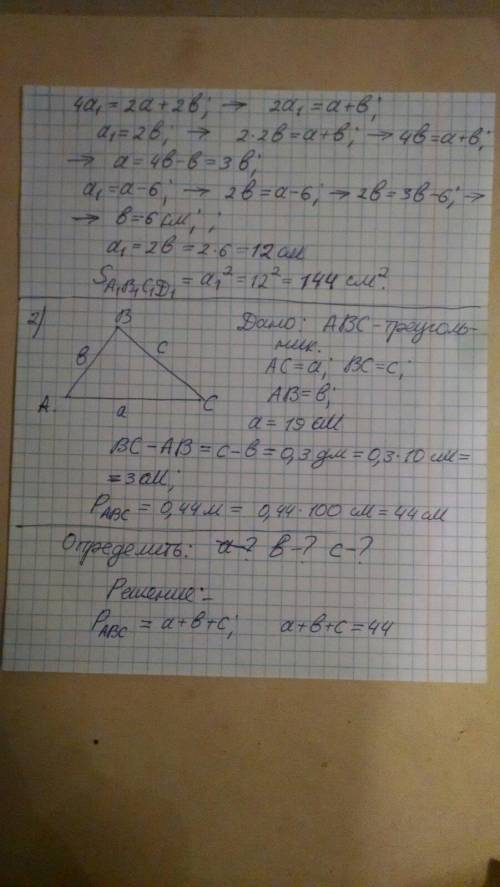 4a₁=2a+2в; → 2a₁=a+в;
a₁=2в; → 2·2в=a+в; → 4в=a+в;
→ a=4в-в=3в;
a₁=a-6; → 2в=a-6; → 2в=3в-6; →
→ в=6 см; ;
a₁=2в=2·6=12 см
S A₁B₁C₁D₁ = a₁²=12²=144 см².
2)
B
в
c
A.
a
C
Дано: ABC-треуголь-
ник.
AC=a; BC=c;
AB=в;
a=19 см
BC-AB=c-в=0,3 дм=0,3·10 см=
=3 см;
P ABC = 0,44 м = 0,44·100 см=44 см
Определить: a-? в-? c-?
Решение:-
P ABC = a+в+c; a+в+c=44